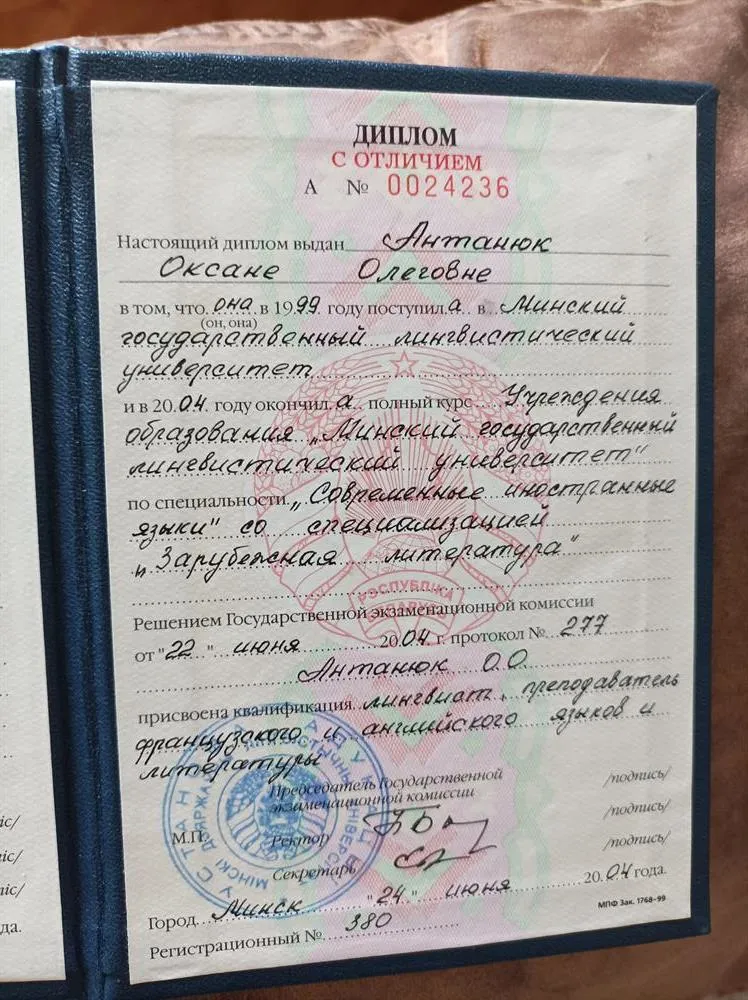 ДИПЛОМ
С ОТЛИЧИЕМ
А № 0024236
Настоящий диплом выдан Антанюк
Оксане Олеговне
в том, что она в 1999 году поступила в Минский
(он, она)
государственный лингвистический
университет
и в 2004 году окончила полный курс Учреждения
образования „Минский государственный
лингвистический университет"
по специальности „Современные иностранные
языки" со специализацией
„Зарубежная литература"
РЭСПУБЛІКА
БЕЛАРУСЬ
Решением Государственной экзаменационной комиссии
от "22" июня 2004 г. протокол № 277
Антанюк О.О.
присвоена квалификация лингвист, преподаватель
французского и английского языков и
литературы
Председатель Государственной
экзаменационной комиссии /подпись/
М.П. Ректор /подпись/
Секретарь /подпись/
Город Минск "24" июня 2004 года.
Регистрационный № 380
МПФ Зак. 1768-99
іс/
іс/
іс/
да.